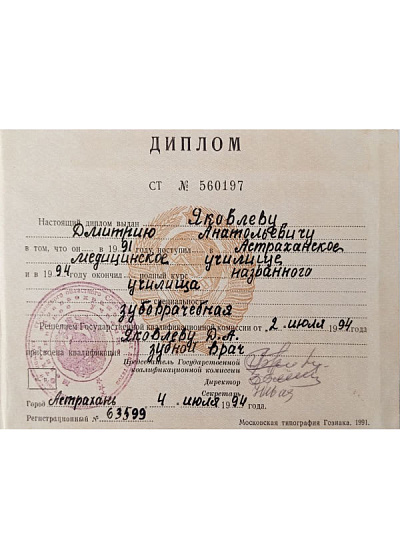 ДИПЛОМ
СТ № 560197
Настоящий диплом выдан Яковлеву
Дмитрию Анатольевичу
в том, что он в 1991 году поступил в Астраханское
медицинское училище
и в 1994 году окончил полный курс названного
училища
по специальности
зубоврачебная
Решением Государственной квалификационной комиссии от 2 июля 1994 года
Яковлеву Д.А.
присвоена квалификация зубной врач
Председатель Государственной
квалификационной комиссии
Директор
Секретарь
Город Астрахань 4 июля 1994 года.
Регистрационный № 63599
Московская типография Гознака. 1991.